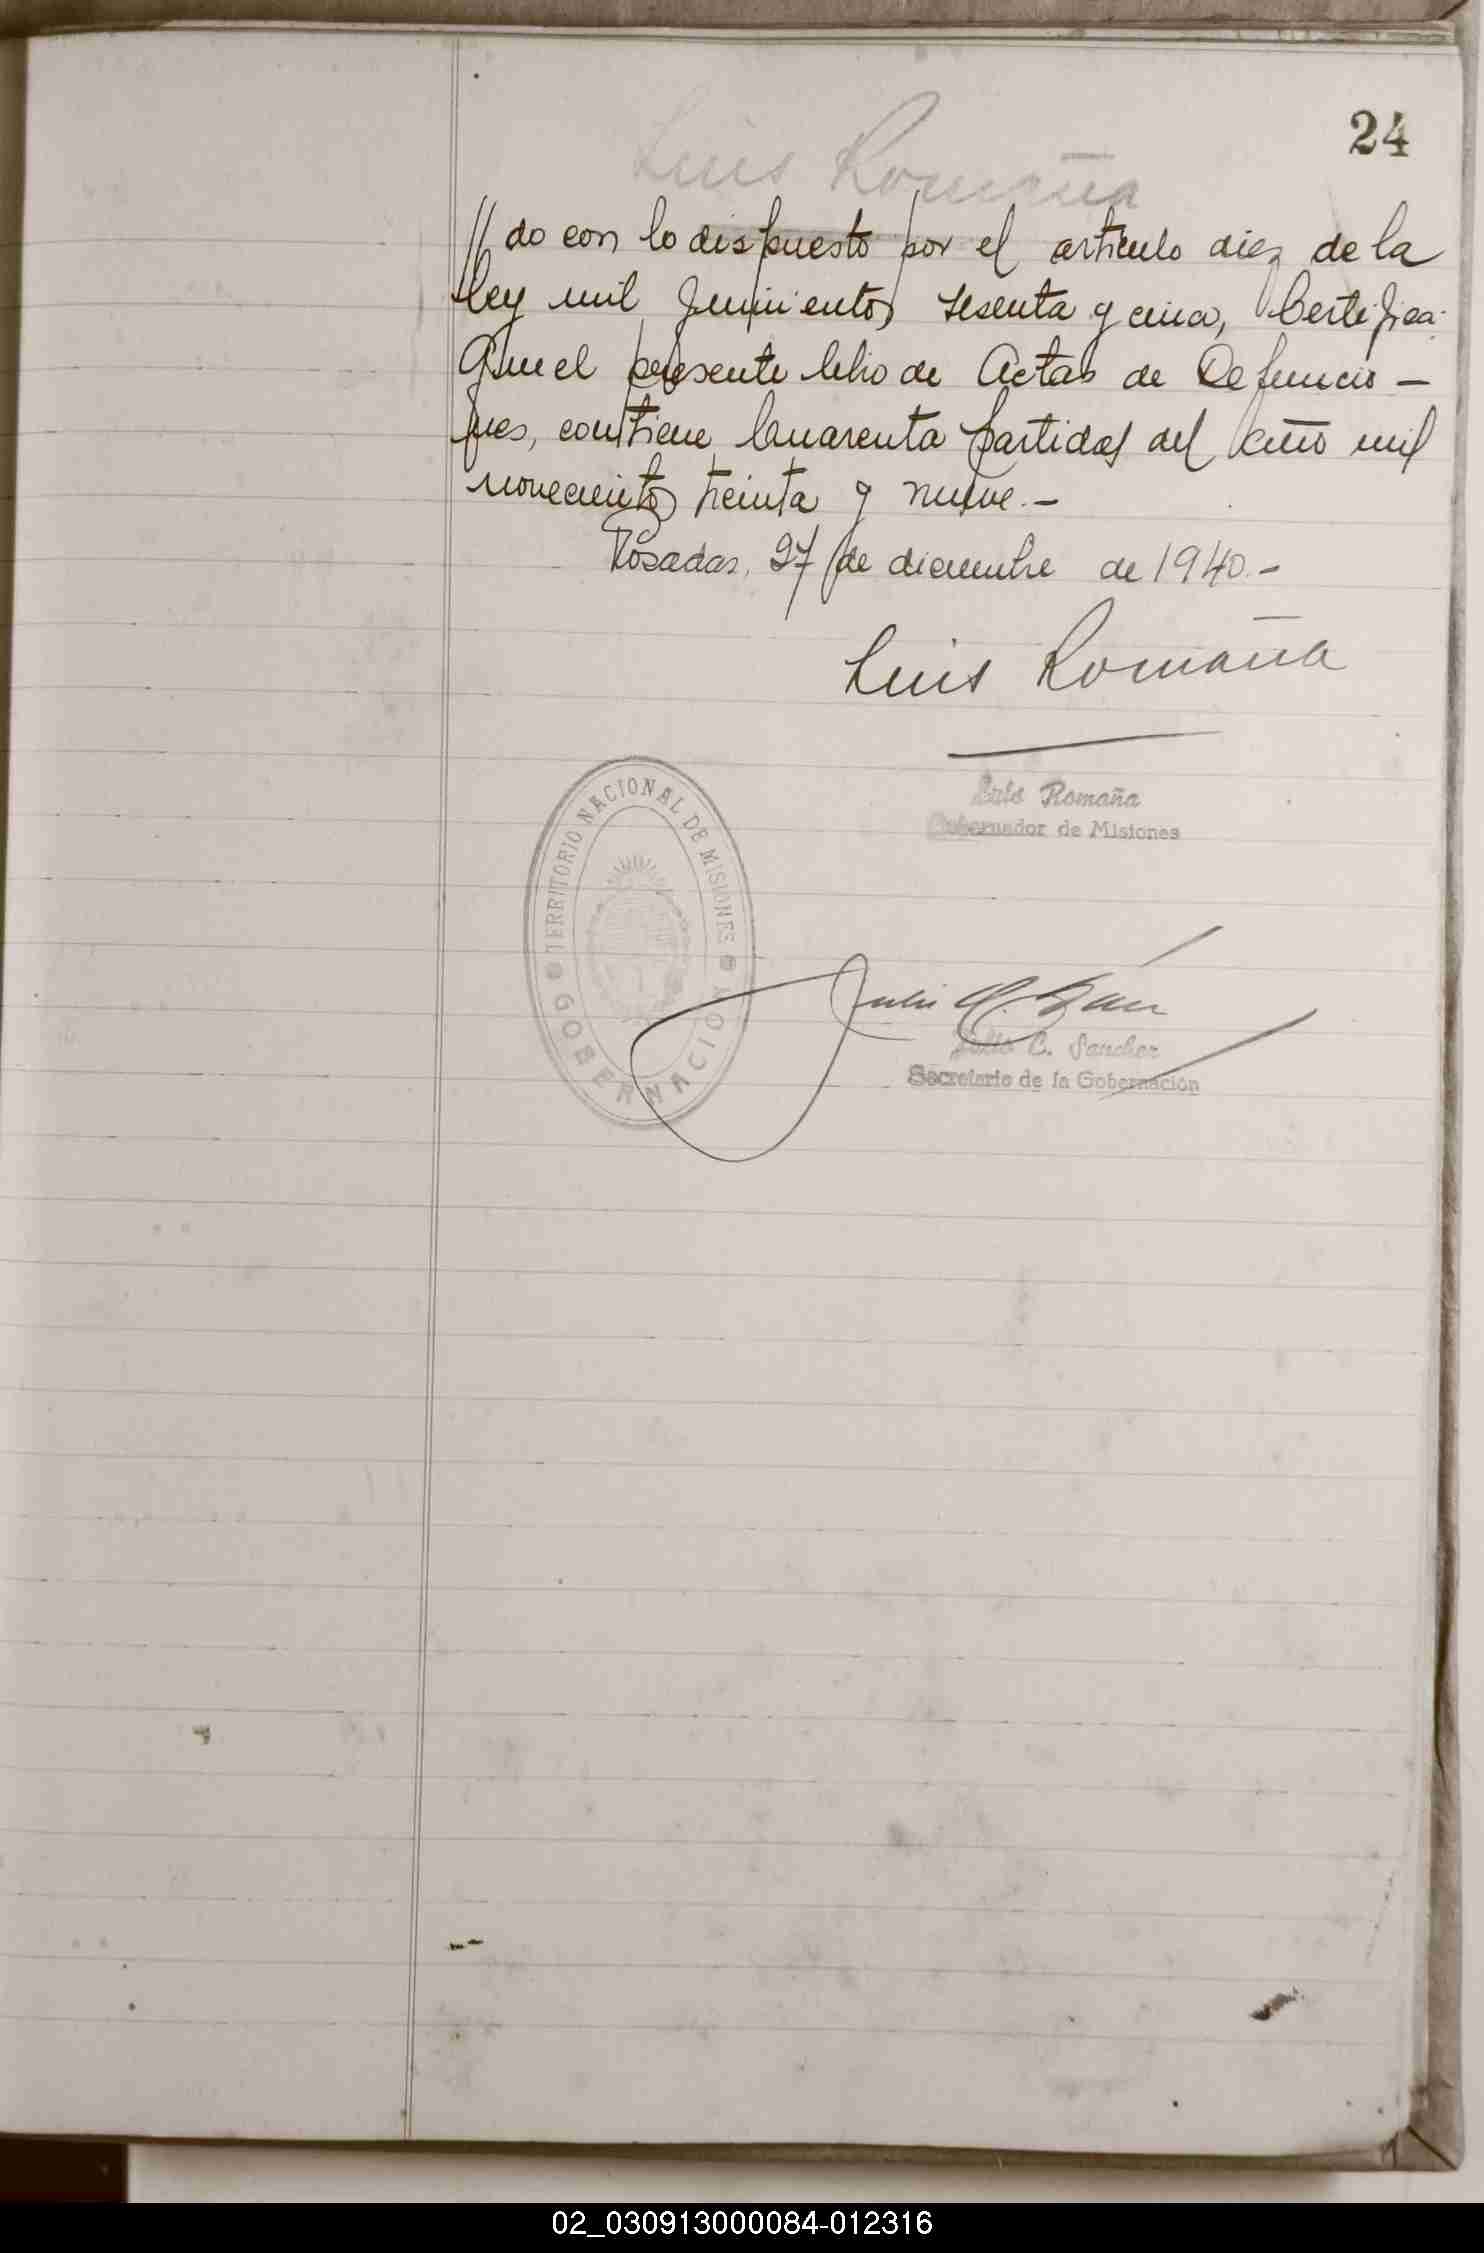 24
Luis Romaña
// do con lo dispuesto por el artículo diez de la
ley mil quinientos sesenta y cinco, Certifica:
Que el presente libro de Actas de Defuncio-
nes, contiene Cuarenta partidas del año mil
novecientos treinta y nueve.-
Posadas, 27 de diciembre de 1940.-
Luis Romaña
Luis Romaña
Gobernador de Misiones
TERRITORIO NACIONAL DE MISIONES
GOBERNACION
Julio C. Sanchez
Secretario de la Gobernación
02_030913000084-012316